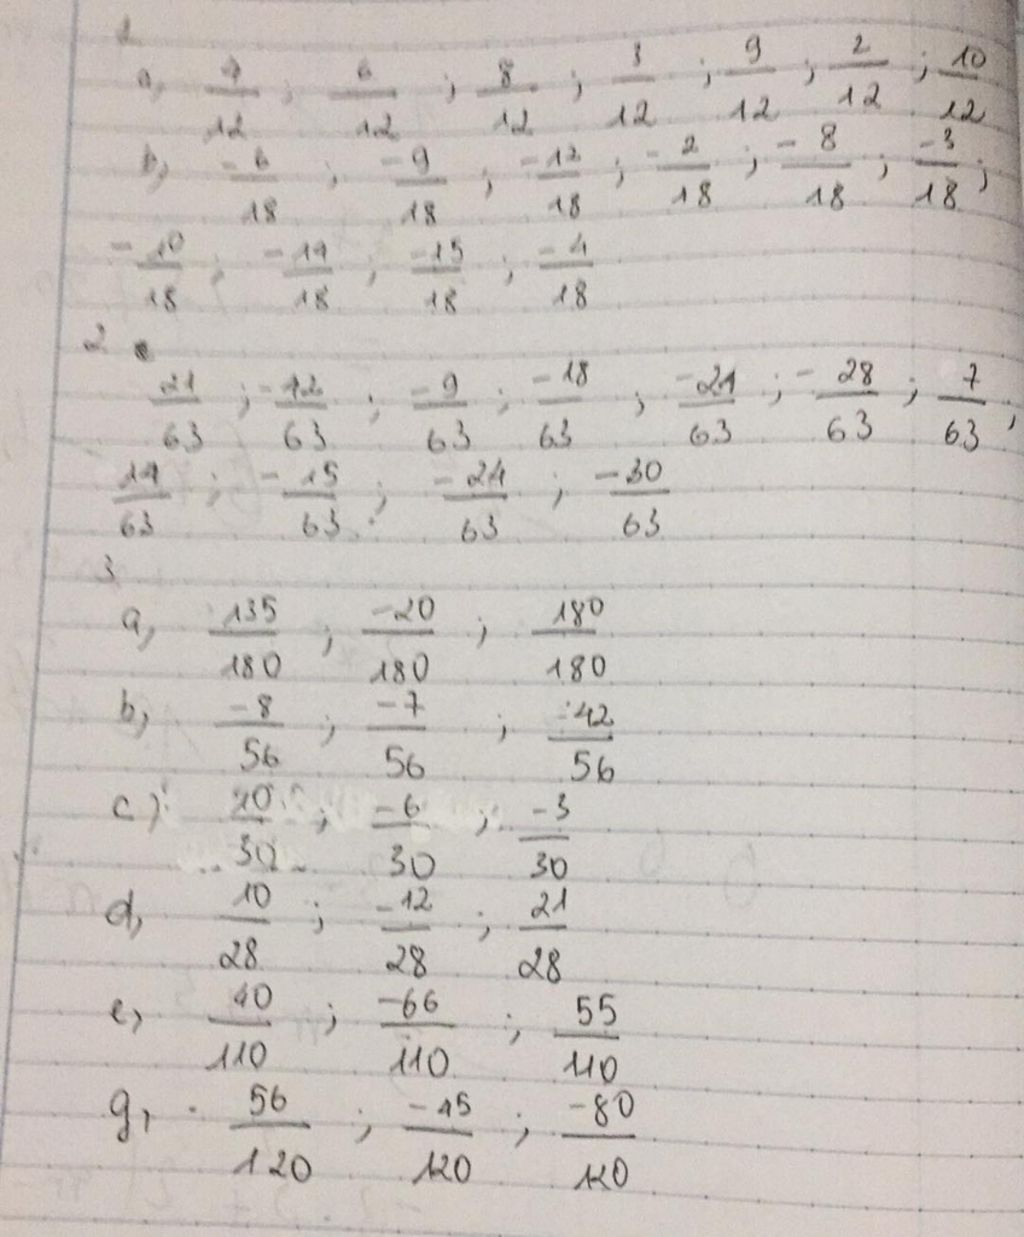 1
a, 7/12 ; 6/12 ; 8/12 ; 3/12 ; 9/12 ; 2/12 ; 10/12
b, -6/18 ; -9/18 ; -12/18 ; -2/18 ; -8/18 ; -3/18 ;
-10/18 ; -14/18 ; -15/18 ; -4/18
2
21/63 ; -12/63 ; -9/63 ; -18/63 ; -21/63 ; -28/63 ; 7/63 ;
14/63 ; -15/63 ; -24/63 ; -30/63
3
a, 135/180 ; -20/180 ; 180/180
b, -8/56 ; -7/56 ; -42/56
c) 20/30 ; -6/30 ; -3/30
d, 10/28 ; -12/28 ; 21/28
e, 40/110 ; -66/110 ; 55/110
g, 56/120 ; -45/120 ; -80/120